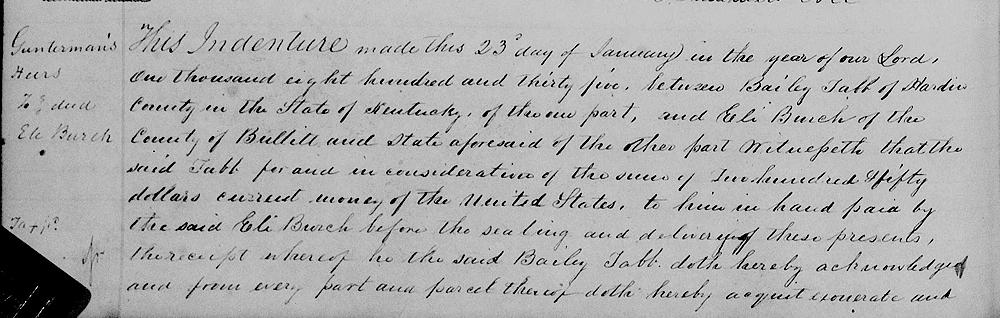 Gunterman's
Heirs
To } deed
Eli Burch
Tax pd.
This Indenture made this 23d day of January in the year of our Lord,
One thousand eight hundred and thirty five, between Bailey Tabb of Hardin
County in the State of Kentucky, of the one part, and Eli Burch of the
County of Bullitt and State aforesaid of the other part Witnesseth that the
said Tabb for and in consideration of the sum of Two hundred & fifty
dollars current money of the United States, to him in hand paid by
the said Eli Burch before the sealing and delivery of these presents,
the receipt whereof he the said Bailey Tabb doth hereby acknowledged
and from every part and parcel thereof doth hereby acquit exonerate and